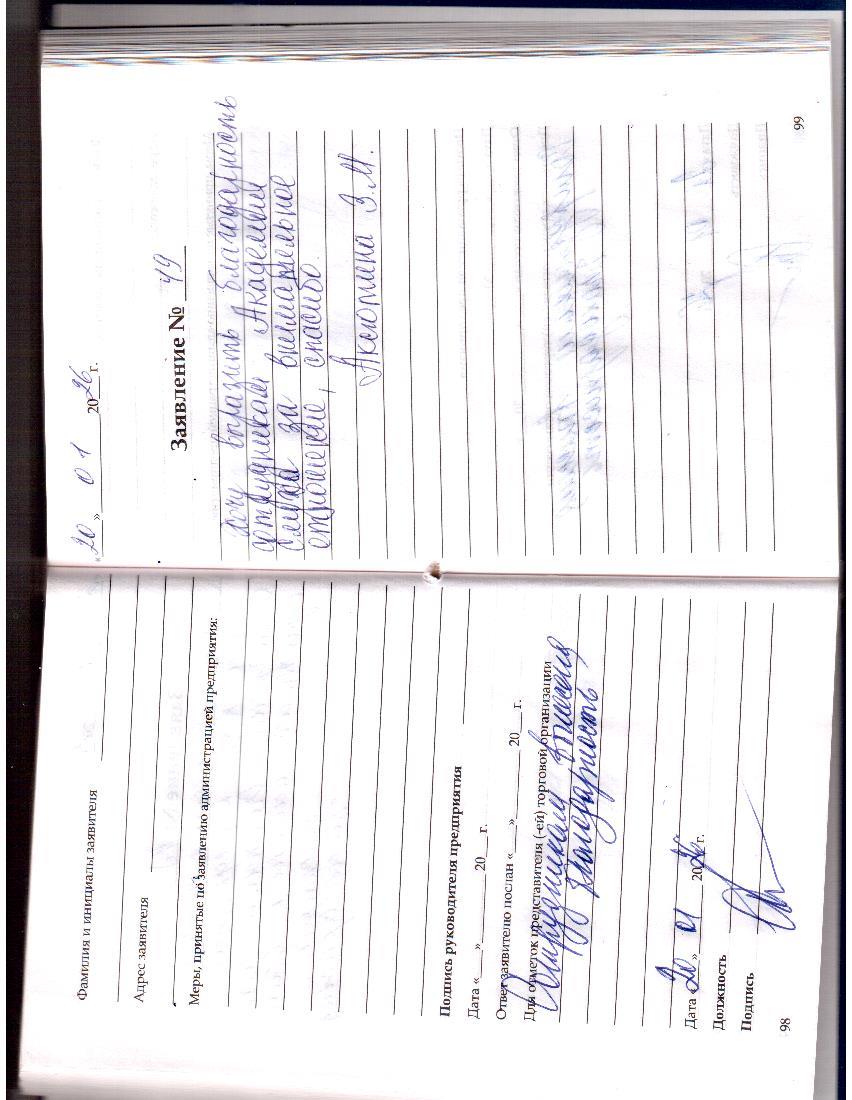 Фамилия и инициалы заявителя
Адрес заявителя
Меры, принятые по заявлению администрацией предприятия:
Подпись руководителя предприятия
Дата « » 20 г.
Ответ заявителю послан « » 20 г.
Для отметок представителя (-ей) торговой организации
Сотрудникам
благодарность
Дата «20» 01 2026 г.
Должность
Подпись
98
«20» 01 2026 г.
Заявление № 49
Хочу выразить благодарность
сотрудникам Академии
слуха за внимательное
отношение, спасибо.
Аксютина З.М.
99